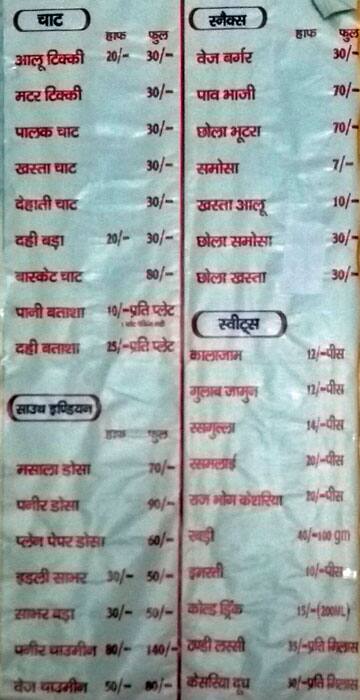 चाट
हाफ फुल
आलू टिक्की 20/- 30/-
मटर टिक्की 30/-
पालक चाट 30/-
खस्ता चाट 30/-
देहाती चाट 30/-
दही बड़ा 20/- 30/-
बास्केट चाट 80/-
पानी बताशा 10/-प्रति प्लेट
दही बताशा 25/-प्रति प्लेट
साउथ इण्डियन
हाफ फुल
मसाला डोसा 70/-
पनीर डोसा 90/-
प्लेन पेपर डोसा 60/-
इडली साभर 30/- 50/-
साभर बड़ा 30/- 50/-
पनीर चाउमीन 80/- 140/-
वेज चाउमीन 50/- 80/-
स्नैक्स
हाफ फुल
वेज बर्गर 30/-
पाव भाजी 70/-
छोला भूटरा 70/-
समोसा 7/-
खस्ता आलू 10/-
छोला समोसा 30/-
छोला खस्ता 30/-
स्वीट्स
कालाजाम 12/-पीस
गुलाब जामुन 12/-पीस
रसगुल्ला 14/-पीस
रसमलाई 20/-पीस
राज भोग केशरिया 20/-पीस
रबड़ी 40/-100 gm
इमरती 10/-पीस
कोल्ड ड्रिंक 15/-(200ML)
ठण्डी लस्सी 35/-प्रति गिलास
केसरिया दूध 30/-प्रति गिलास